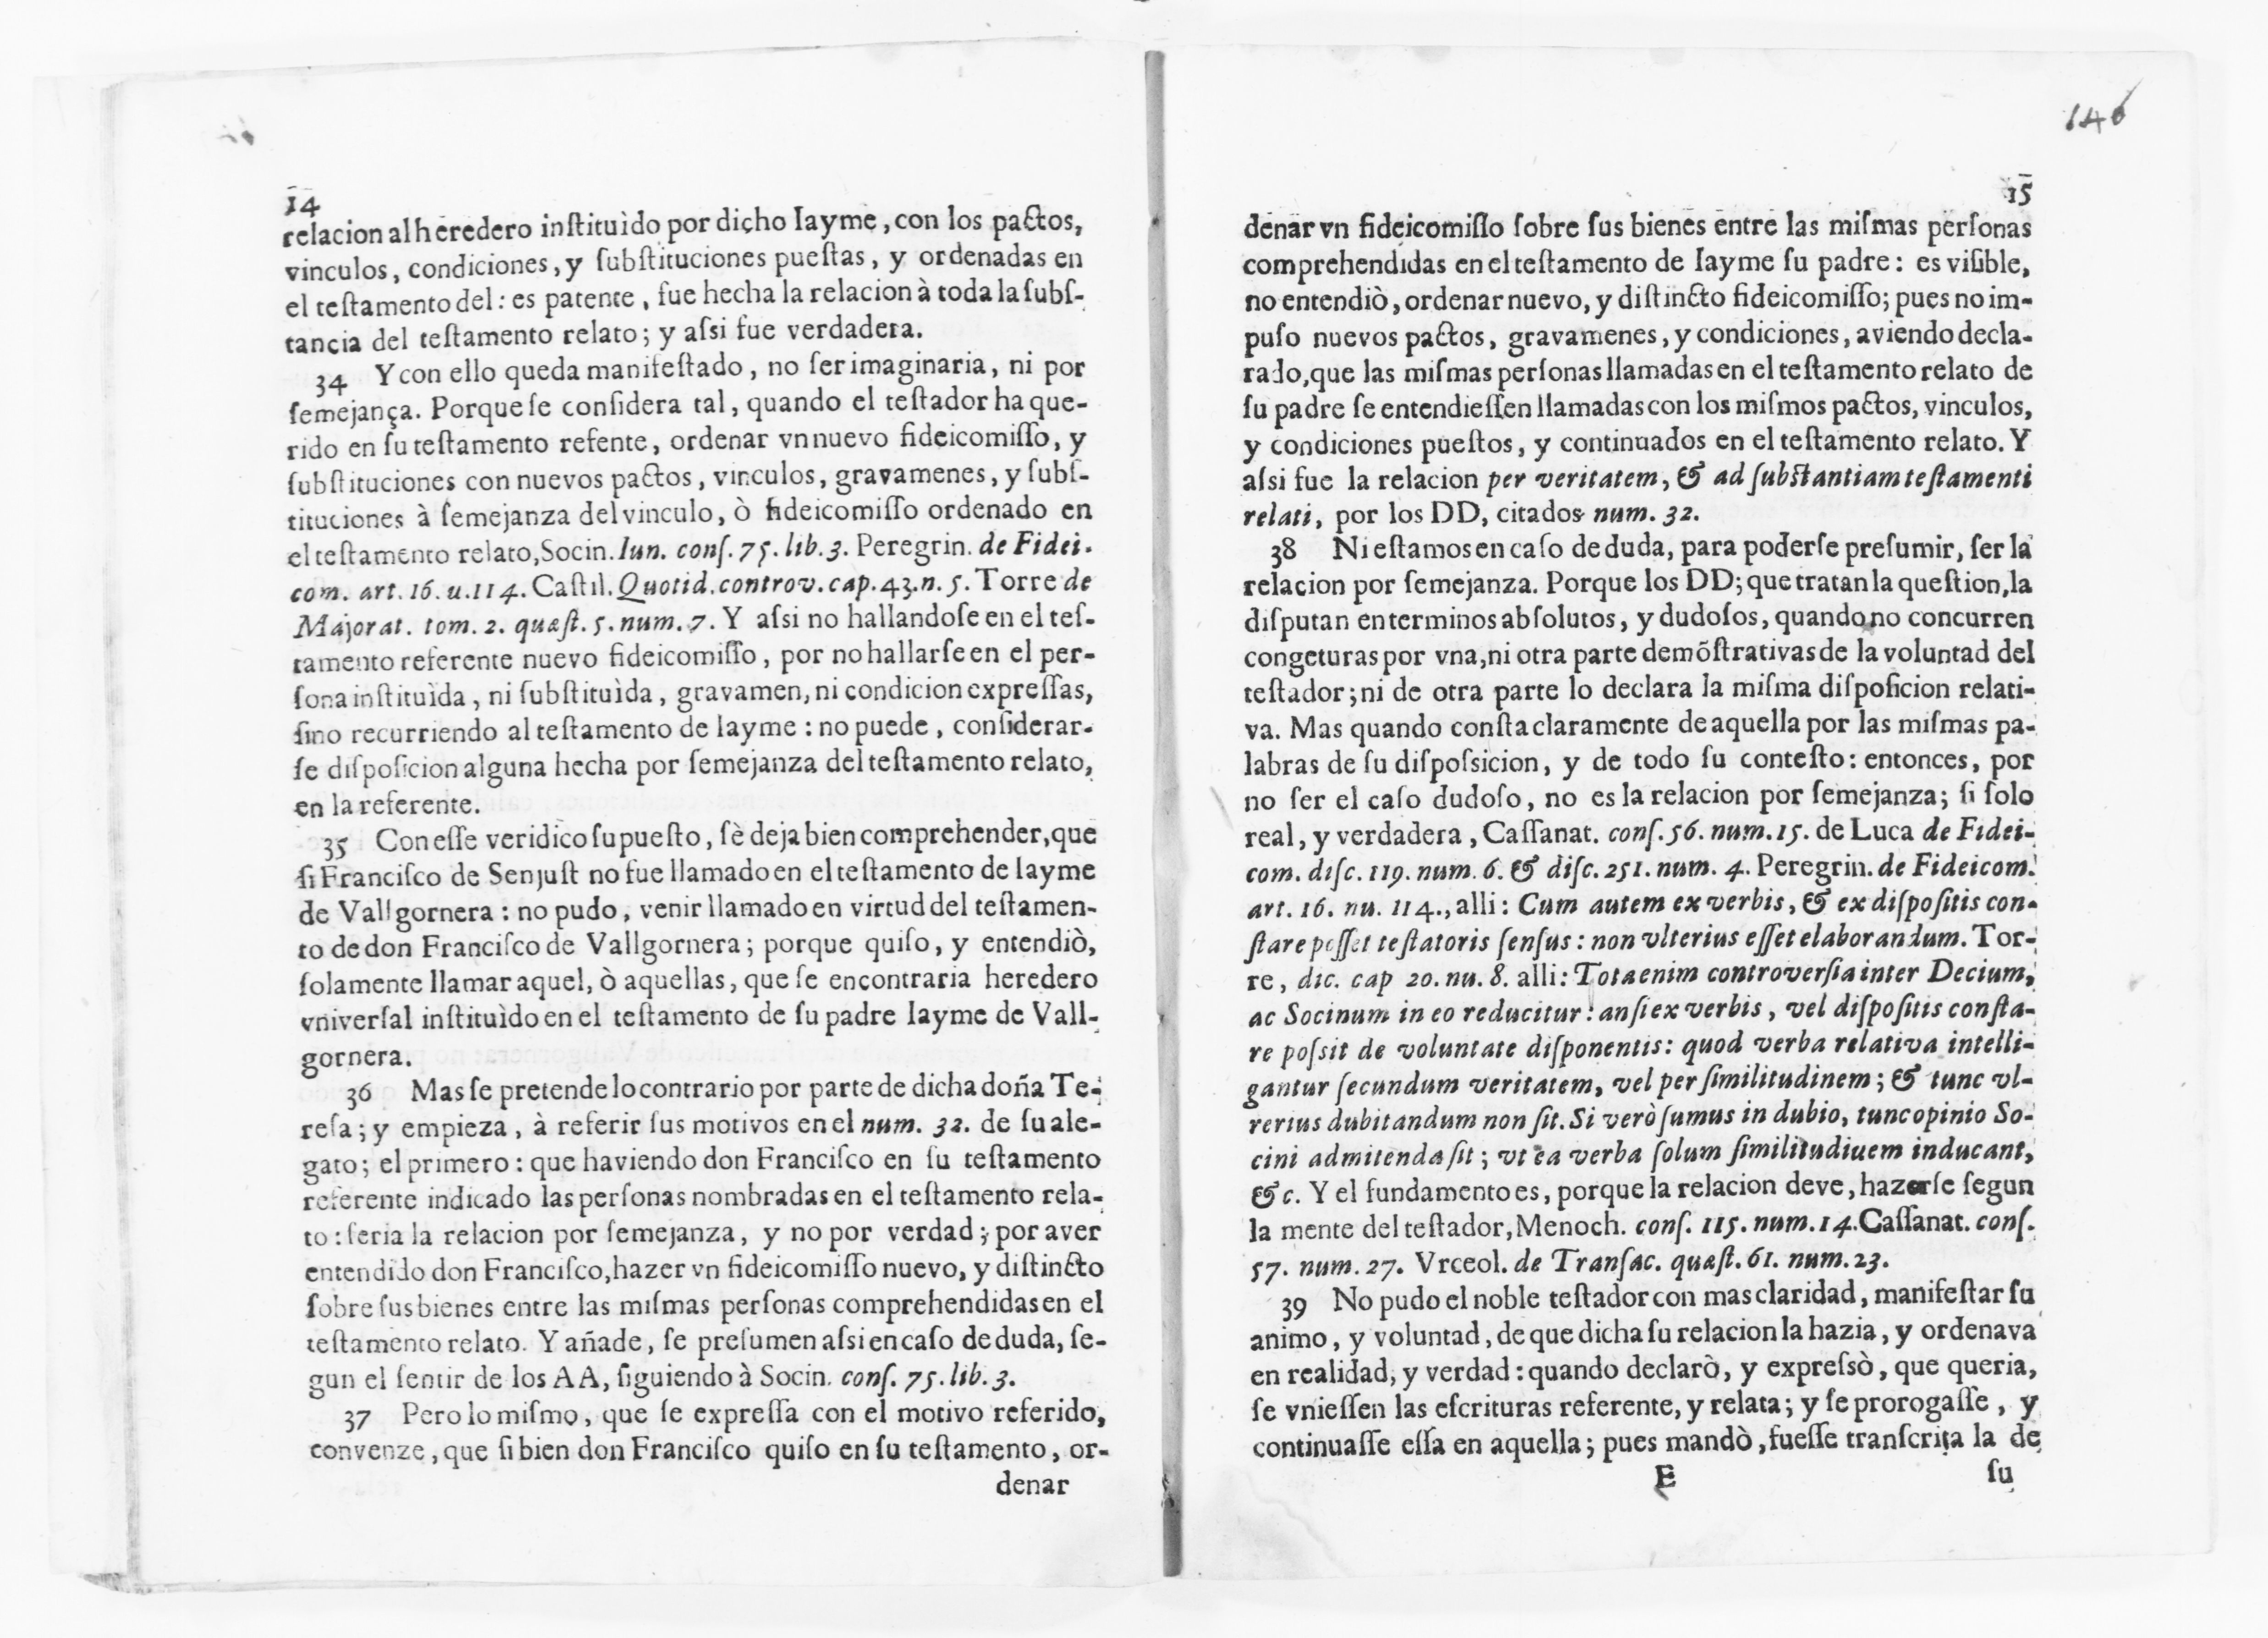 14
relacion al heredero instituìdo por dicho Iayme, con los pactos,
vinculos, condiciones, y ſubſtituciones pueſtas, y ordenadas en
el teſtamento del: es patente, fue hecha la relacion à toda la ſubſ-
tancia del teſtamento relato; y aſsi fue verdadera.
34 Y con ello queda manifeſtado, no ſer imaginaria, ni por
ſemejança. Porque ſe conſidera tal, quando el teſtador ha que-
rido en ſu teſtamento refente, ordenar vn nuevo fideicomiſſo, y
ſubſtituciones con nuevos pactos, vinculos, gravamenes, y ſubſ-
tituciones à ſemejanza del vinculo, ò fideicomiſſo ordenado en
el teſtamento relato, Socin. Iun. conſ. 75. lib. 3. Peregrin. de Fidei-
com. art. 16. u. 114. Caſtil. Quotid. controv. cap. 43. n. 5. Torre de
Majorat. tom. 2. quæſt. 5. num. 7. Y aſsi no hallandoſe en el teſ-
tamento referente nuevo fideicomiſſo, por no hallarſe en el per-
ſona inſtituìda, ni ſubſtituìda, gravamen, ni condicion expreſſas,
ſino recurriendo al teſtamento de Iayme: no puede, conſiderar-
ſe diſpoſicion alguna hecha por ſemejanza del teſtamento relato,
en la referente.
35 Con eſſe veridico ſupueſto, ſè deja bien comprehender, que
ſi Franciſco de Senjuſt no fue llamado en el teſtamento de Iayme
de Vallgornera: no pudo, venir llamado en virtud del teſtamen-
to de don Franciſco de Vallgornera; porque quiſo, y entendiò,
ſolamente llamar aquel, ò aquellas, que ſe encontraria heredero
vniverſal inſtituìdo en el teſtamento de ſu padre Iayme de Vall-
gornera.
36 Mas ſe pretende lo contrario por parte de dicha doña Te-
reſa; y empieza, à referir ſus motivos en el num. 32. de ſu ale-
gato; el primero: que haviendo don Franciſco en ſu teſtamento
referente indicado las perſonas nombradas en el teſtamento rela-
to: ſeria la relacion por ſemejanza, y no por verdad; por aver
entendido don Franciſco, hazer vn fideicomiſſo nuevo, y diſtincto
ſobre ſus bienes entre las miſmas perſonas comprehendidas en el
teſtamento relato. Y añade, ſe preſumen aſsi en caſo de duda, ſe-
gun el ſentir de los AA, ſiguiendo à Socin. conſ. 75. lib. 3.
37 Pero lo miſmo, que ſe expreſſa con el motivo referido,
convenze, que ſi bien don Franciſco quiſo en ſu teſtamento, or-
denar
146
15
denar vn fideicomiſſo ſobre ſus bienes entre las miſmas perſonas
comprehendidas en el teſtamento de Iayme ſu padre: es viſible,
no entendiò, ordenar nuevo, y diſtincto fideicomiſſo; pues no im-
puſo nuevos pactos, gravamenes, y condiciones, aviendo decla-
rado, que las miſmas perſonas llamadas en el teſtamento relato de
ſu padre ſe entendieſſen llamadas con los miſmos pactos, vinculos,
y condiciones pueſtos, y continuados en el teſtamento relato. Y
aſsi fue la relacion per veritatem, & ad ſubſtantiam teſtamenti
relati, por los DD, citados num. 32.
38 Ni eſtamos en caſo de duda, para poderſe preſumir, ſer la
relacion por ſemejanza. Porque los DD; que tratan la queſtion, la
diſputan en terminos abſolutos, y dudoſos, quando no concurren
congeturas por vna, ni otra parte demõſtrativas de la voluntad del
teſtador; ni de otra parte lo declara la miſma diſpoſicion relati-
va. Mas quando conſta claramente de aquella por las miſmas pa-
labras de ſu diſpoſsicion, y de todo ſu conteſto: entonces, por
no ſer el caſo dudoſo, no es la relacion por ſemejanza; ſi ſolo
real, y verdadera, Caſſanat. conſ. 56. num. 15. de Luca de Fidei-
com. diſc. 119. num. 6. & diſc. 251. num. 4. Peregrin. de Fideicom.
art. 16. nu. 114., alli: Cum autem ex verbis, & ex diſpoſitis con-
ſtare poſſet teſtatoris ſenſus: non vlterius eſſet elaborandum. Tor-
re, dic. cap 20. nu. 8. alli: Tota enim controverſia inter Decium,
ac Socinum in eo reducitur: an ſi ex verbis, vel diſpoſitis conſta-
re poſsit de voluntate diſponentis: quod verba relativa intelli-
gantur ſecundum veritatem, vel per ſimilitudinem; & tunc vl-
rerius dubitandum non ſit. Si verò ſumus in dubio, tunc opinio So-
cini admitenda ſit; vt ea verba ſolum ſimilitudiuem inducant,
&c. Y el fundamento es, porque la relacion deve, hazerſe ſegun
la mente del teſtador, Menoch. conſ. 115. num. 14. Caſſanat. conſ.
57. num. 27. Vrceol. de Tranſac. quæſt. 61. num. 23.
39 No pudo el noble teſtador con mas claridad, manifeſtar ſu
animo, y voluntad, de que dicha ſu relacion la hazia, y ordenava
en realidad, y verdad: quando declarò, y expreſsò, que queria,
ſe vnieſſen las eſcrituras referente, y relata; y ſe prorogaſſe, y
continuaſſe eſſa en aquella; pues mandò, fueſſe tranſcrita la de
E ſu